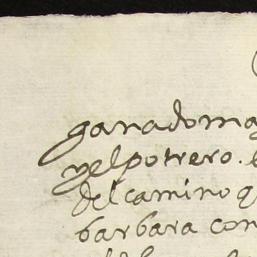 ganado ma
y el potrero.
del camino q
barbara con